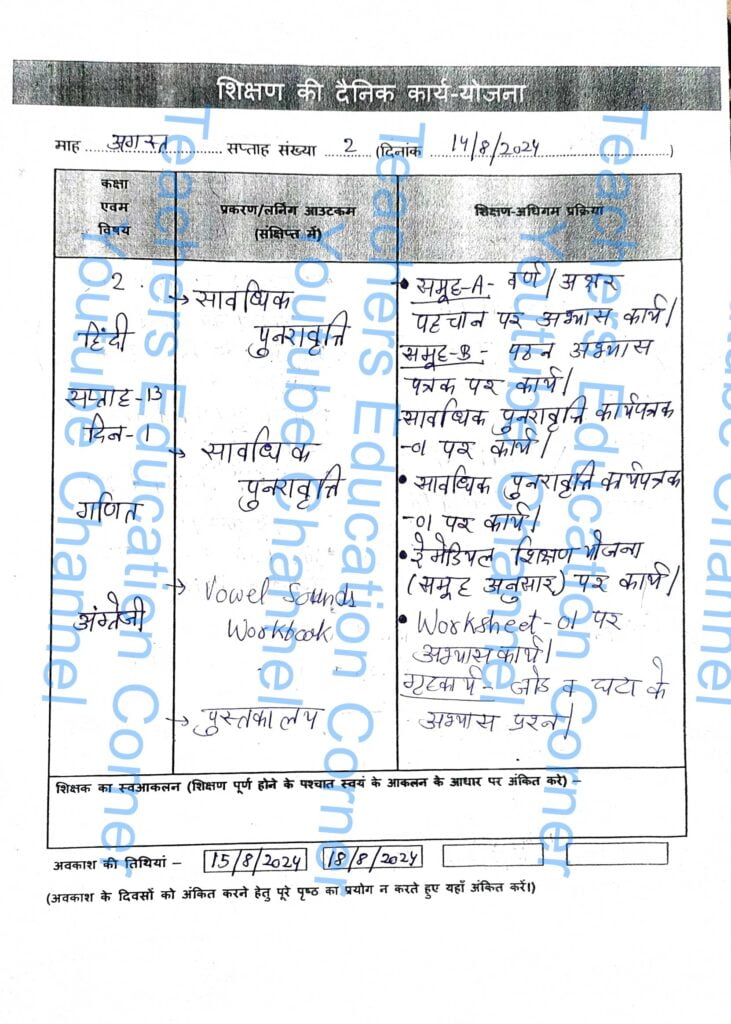 शिक्षण की दैनिक कार्य-योजना
माह अगस्त सप्ताह संख्या 2 (दिनांक 14/8/2024)
कक्षा
एवम
विषय
प्रकरण/लर्निंग आउटकम
(संक्षिप्त में)
शिक्षण-अधिगम प्रक्रिया
2
हिंदी
सप्ताह-13
दिन-1
गणित
अंग्रेजी
→ सावधिक
पुनरावृत्ति
→ सावधिक
पुनरावृत्ति
→ Vowel Sounds
Workbook
→ पुस्तकालय
• समूह-A- वर्ण/अक्षर
पहचान पर अभ्यास कार्य।
समूह-B- पठन अभ्यास
पत्रक पर कार्य।
सावधिक पुनरावृत्ति कार्यपत्रक
-01 पर कार्य।
• सावधिक पुनरावृत्ति कार्यपत्रक
-01 पर कार्य।
• रेमेडियल शिक्षण योजना
(समूह अनुसार) पर कार्य।
• Worksheet-01 पर
अभ्यास कार्य।
गृहकार्य- जोड व घटा के
अभ्यास प्रश्न।
शिक्षक का स्वआकलन (शिक्षण पूर्ण होने के पश्चात स्वयं के आकलन के आधार पर अंकित करे) –
अवकाश की तिथियां – 15/8/2024 18/8/2024
(अवकाश के दिवसों को अंकित करने हेतु पूरे पृष्ठ का प्रयोग न करते हुए यहाँ अंकित करें।)
Teachers Education Corner
Youtube Channel
Teachers Education Corner
Youtube Channel
Teachers Education Corner
Youtube Channel